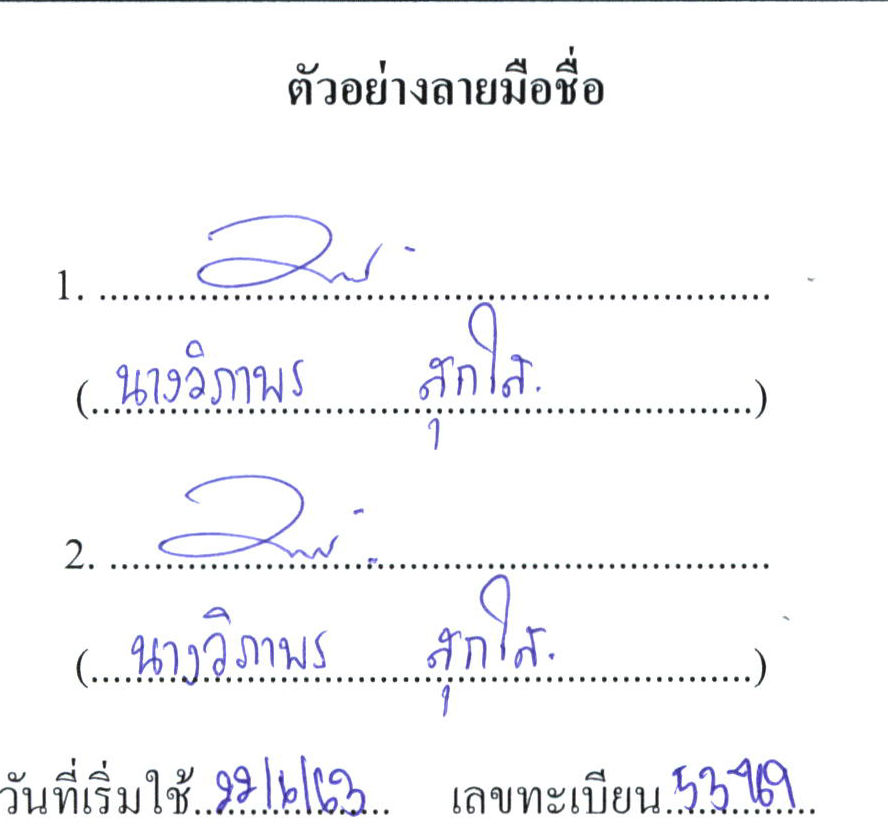 ตัวอย่างลายมือชื่อ
1. ........................................
(นางวิภาพร สุกใส.)
2. ........................................
(นางวิภาพร สุกใส.)
วันที่เริ่มใช้ 22/6/63 เลขทะเบียน